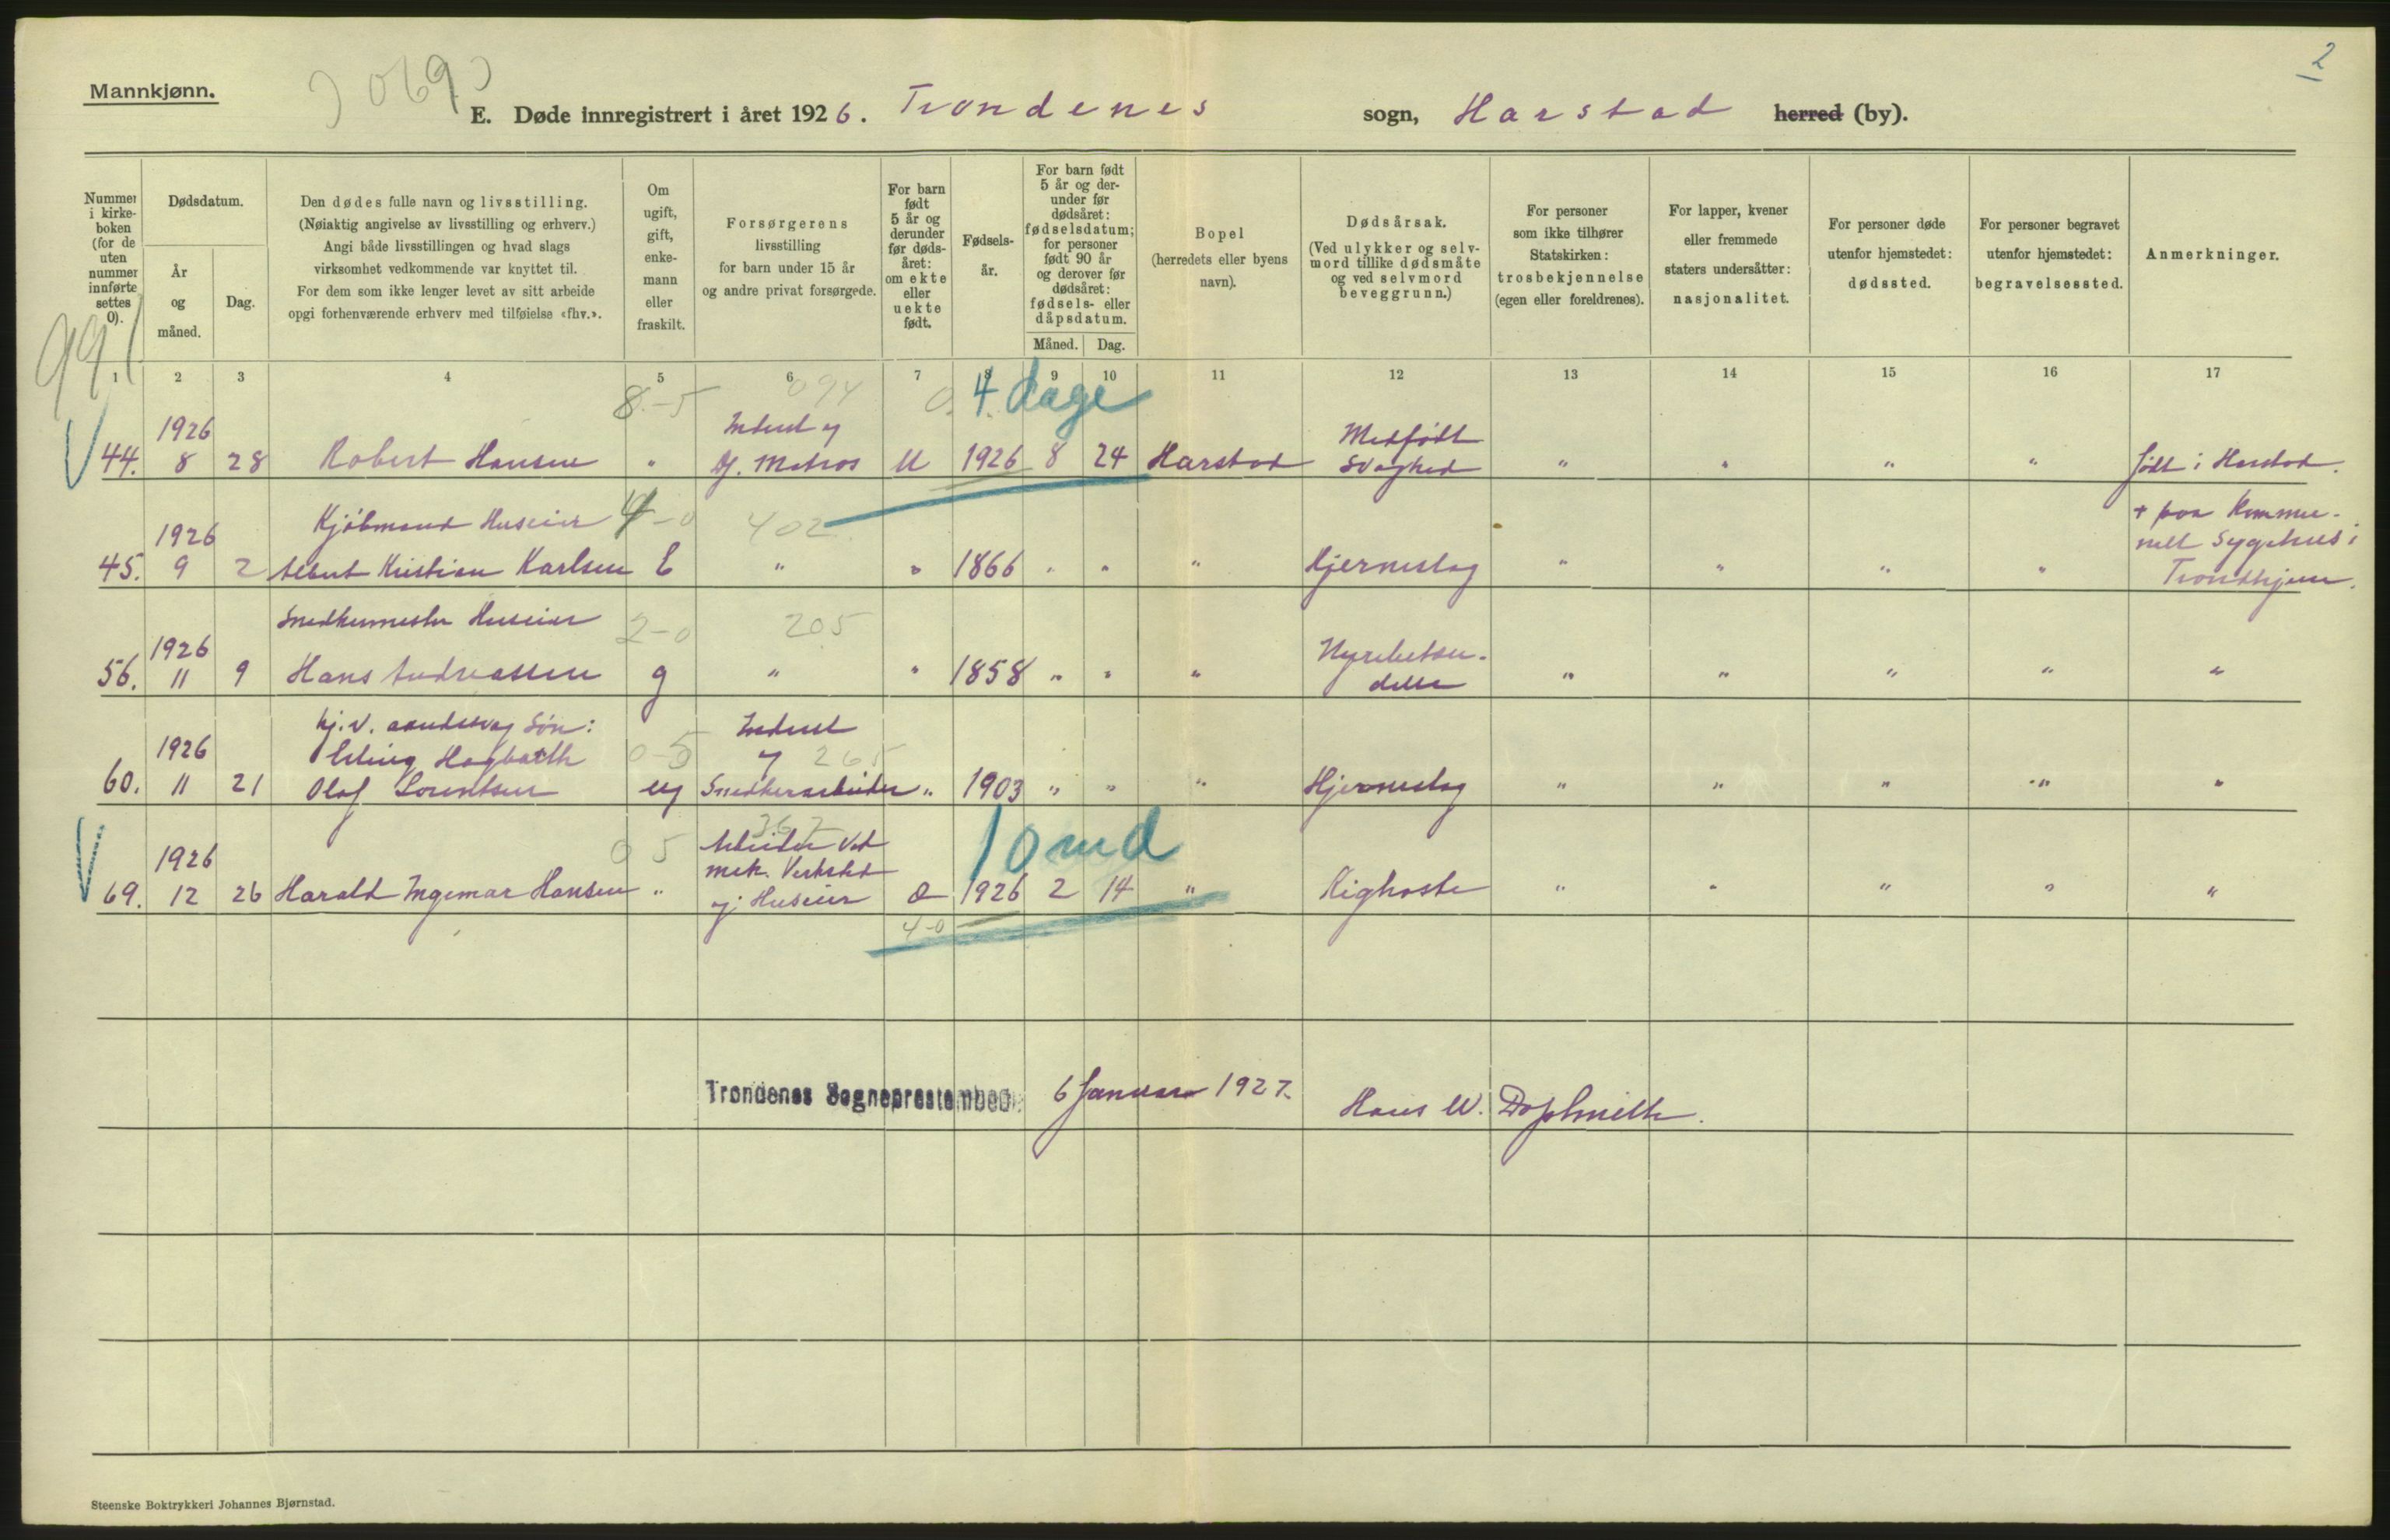 2
Mannkjønn.
E. Døde innregistrert i året 1926. Trondenes sogn, Harstad herred (by).
Nummer i kirkeboken (for de uten nummer innførte settes 0).
Dødsdatum.
År og måned.
Dag.
Den dødes fulle navn og livsstilling.
(Nøiaktig angivelse av livsstilling og erhverv.)
Angi både livsstillingen og hvad slags
virksomhet vedkommende var knyttet til.
For dem som ikke lenger levet av sitt arbeide
opgi forhenværende erhverv med tilføielse «fhv.».
Om ugift, gift, enkemann eller fraskilt.
Forsørgerens
livsstilling
for barn under 15 år
og andre privat forsørgede.
For barn født 5 år og derunder før dødsåret: om ekte eller uekte født.
Fødselsår.
For barn født 5 år og derunder før dødsåret: fødselsdatum; for personer født 90 år og derover før dødsåret: fødsels- eller dåpsdatum.
Måned. Dag.
Bopel
(herredets eller byens
navn).
Dødsårsak.
(Ved ulykker og selvmord tillike dødsmåte og ved selvmord beveggrunn.)
For personer
som ikke tilhører
Statskirken:
trosbekjennelse
(egen eller foreldrenes).
For lapper, kvener
eller fremmede
staters undersåtter:
nasjonalitet.
For personer døde
utenfor hjemstedet:
dødssted.
For personer begravet
utenfor hjemstedet:
begravelsessted.
Anmerkninger.
1 2 3 4 5 6 7 8 9 10 11 12 13 14 15 16 17
8-5 094 4 dage
44. 1926 8 28 Robert Hansen " Matros U 1926 8 24 Harstad Medfødt Svaghed " " " " født i Harstad.
Kjøbmand Huseier 4-0 402
45. 1926 9 2 Albert Kristian Karlsen E " " 1866 " " " Hjerneslag " " " " + paa Kommunell Sygehus i Trondhjem.
Snedkermester Huseier 2-0 205
56. 1926 11 9 Hans Andreassen g " " 1858 " " " " " " " "
Søn:
0-5 265
60. 1926 11 21 Erling Hagbarth Olaf Lorentsen ug Snedkerarbeider " 1903 " " " Hjerneslag " " " " "
0 5 367 10 md
69. 1926 12 26 Harald Ingemar Hansen " Arbeider ved mek. Verksted og Huseier 1926 2 14 " Kighoste " " " " "
4-0
Trondenes Sogneprestembede 6 Januar 1927. Hans W.
Steenske Boktrykkeri Johannes Bjørnstad.